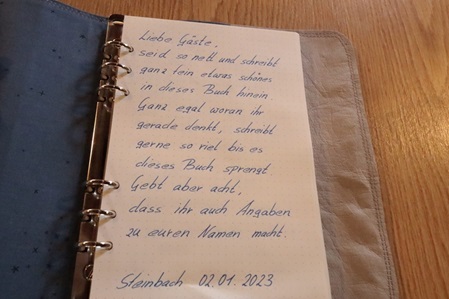 Liebe Gäste,
seid so nett und schreibt
ganz fein etwas schönes
in dieses Buch hinein
Ganz egal woran ihr
gerade denkt, schreibt
gerne so viel bis es
dieses Buch sprengt
Gebt aber acht,
dass ihr auch Angaben
zu euren Namen macht.
Steinbach 02.01.2023